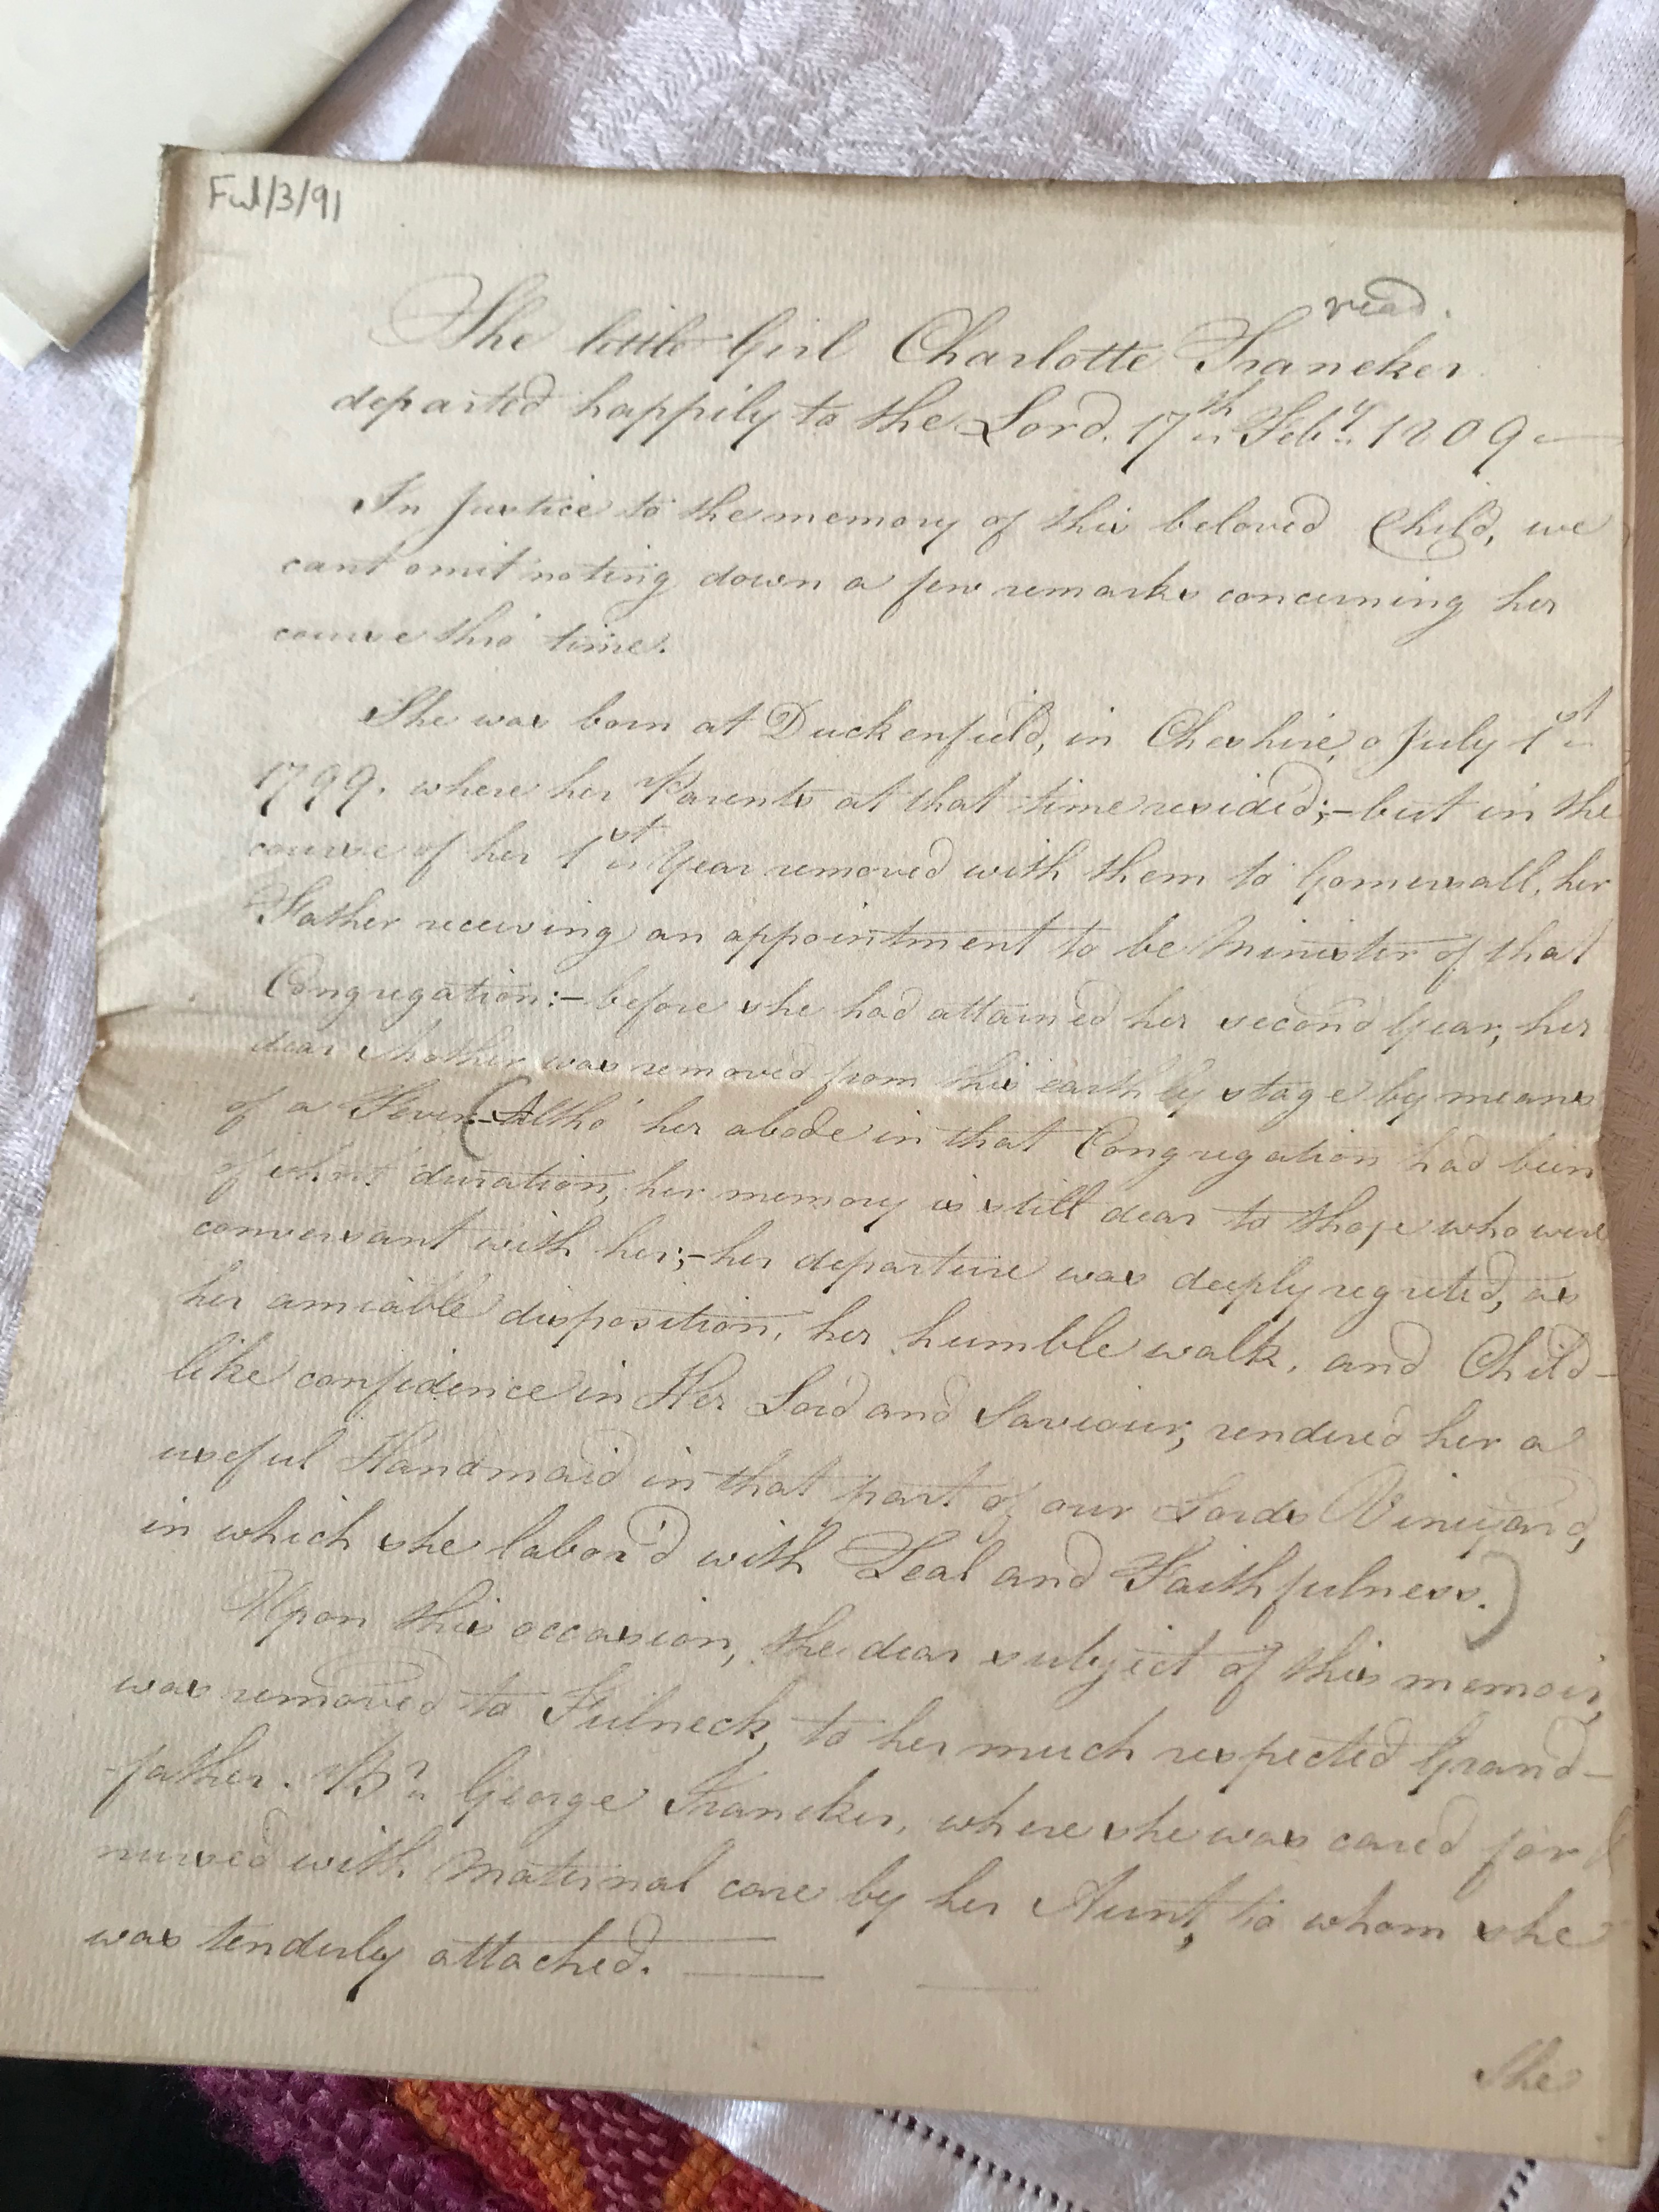 Ful/3/91
read.
The little Girl Charlotte Traneker
departed happily to the Lord. 17th Feby. 1809
In Justice to the memory of this beloved Child, we
cant omit noting down a few remarks concerning her
course thro' time.
She was born at Duckenfield, in Cheshire, July 1st
1799. where her Parents at that time resided;- but in the
course of her 1st Year removed with them to Gomersall, her
Father receiving an appointment to be Minister of that
Congregation:- before she had attained her second Year, her
dear Mother was removed from this earthly stage by means
of a Fever. (Altho' her abode in that Congregation had been
of short duration, her memory is still dear to those who were
conversant with her;- her departure was deeply regreted, as
her amiable disposition, her humble walk, and Child-
like confidence in Her Lord and Saviour, rendered her a
useful Handmaid in that part of our Lords Vineyard,
in which she labor'd with Zeal and Faithfulness.)
Upon this occasion, the dear subject of this memoir,
was removed to Fulneck, to her much respected Grand-
-father. Br. George Traneker, where she was cared for &
nursed with Maternal care by her Aunt, to whom she
was tenderly attached.
She